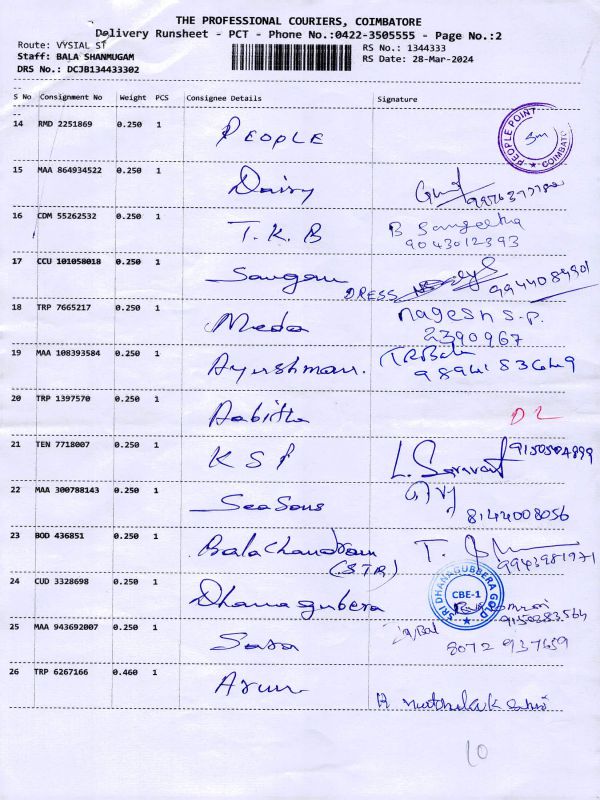 THE PROFESSIONAL COURIERS, COIMBATORE
Delivery Runsheet - PCT - Phone No.:0422-3505555 - Page No.:2
Route: VYSIAL ST
RS No.: 1344333
Staff: BALA SHANMUGAM
RS Date: 28-Mar-2024
DRS No.: DCJB134433302
S No Consignment No Weight PCS Consignee Details Signature
14 RMD 2251869 0.250 1 PEOPLE
PEOPLE POINT COIMBATO
15 MAA 864934522 0.250 1 Daisy
16 CDM 55262532 0.250 1 T.K.B B Sangeetha
9043012393
17 CCU 101058018 0.250 1 Sangam DRESS 9944089901
18 TRP 7665217 0.250 1 Meda nagesh S.P.
2390967
19 MAA 108393584 0.250 1 Ayushman. T.R.Bala
20 TRP 1397570 0.250 1 Aabitha DL
21 TEN 7718007 0.250 1 K S P L. Saravan 9150504899
22 MAA 300788143 0.250 1 Seasons
8144008056
23 BOD 436851 0.250 1 Balachandram
(S.T.R.) 9943981971
24 CUD 3328698 0.250 1 Dhanagubera
SRI DHANAGUBBERA GOLD CBE-1
9150283564
25 MAA 943692007 0.250 1 Sara
8072 937659
26 TRP 6267166 0.460 1 Arun
10